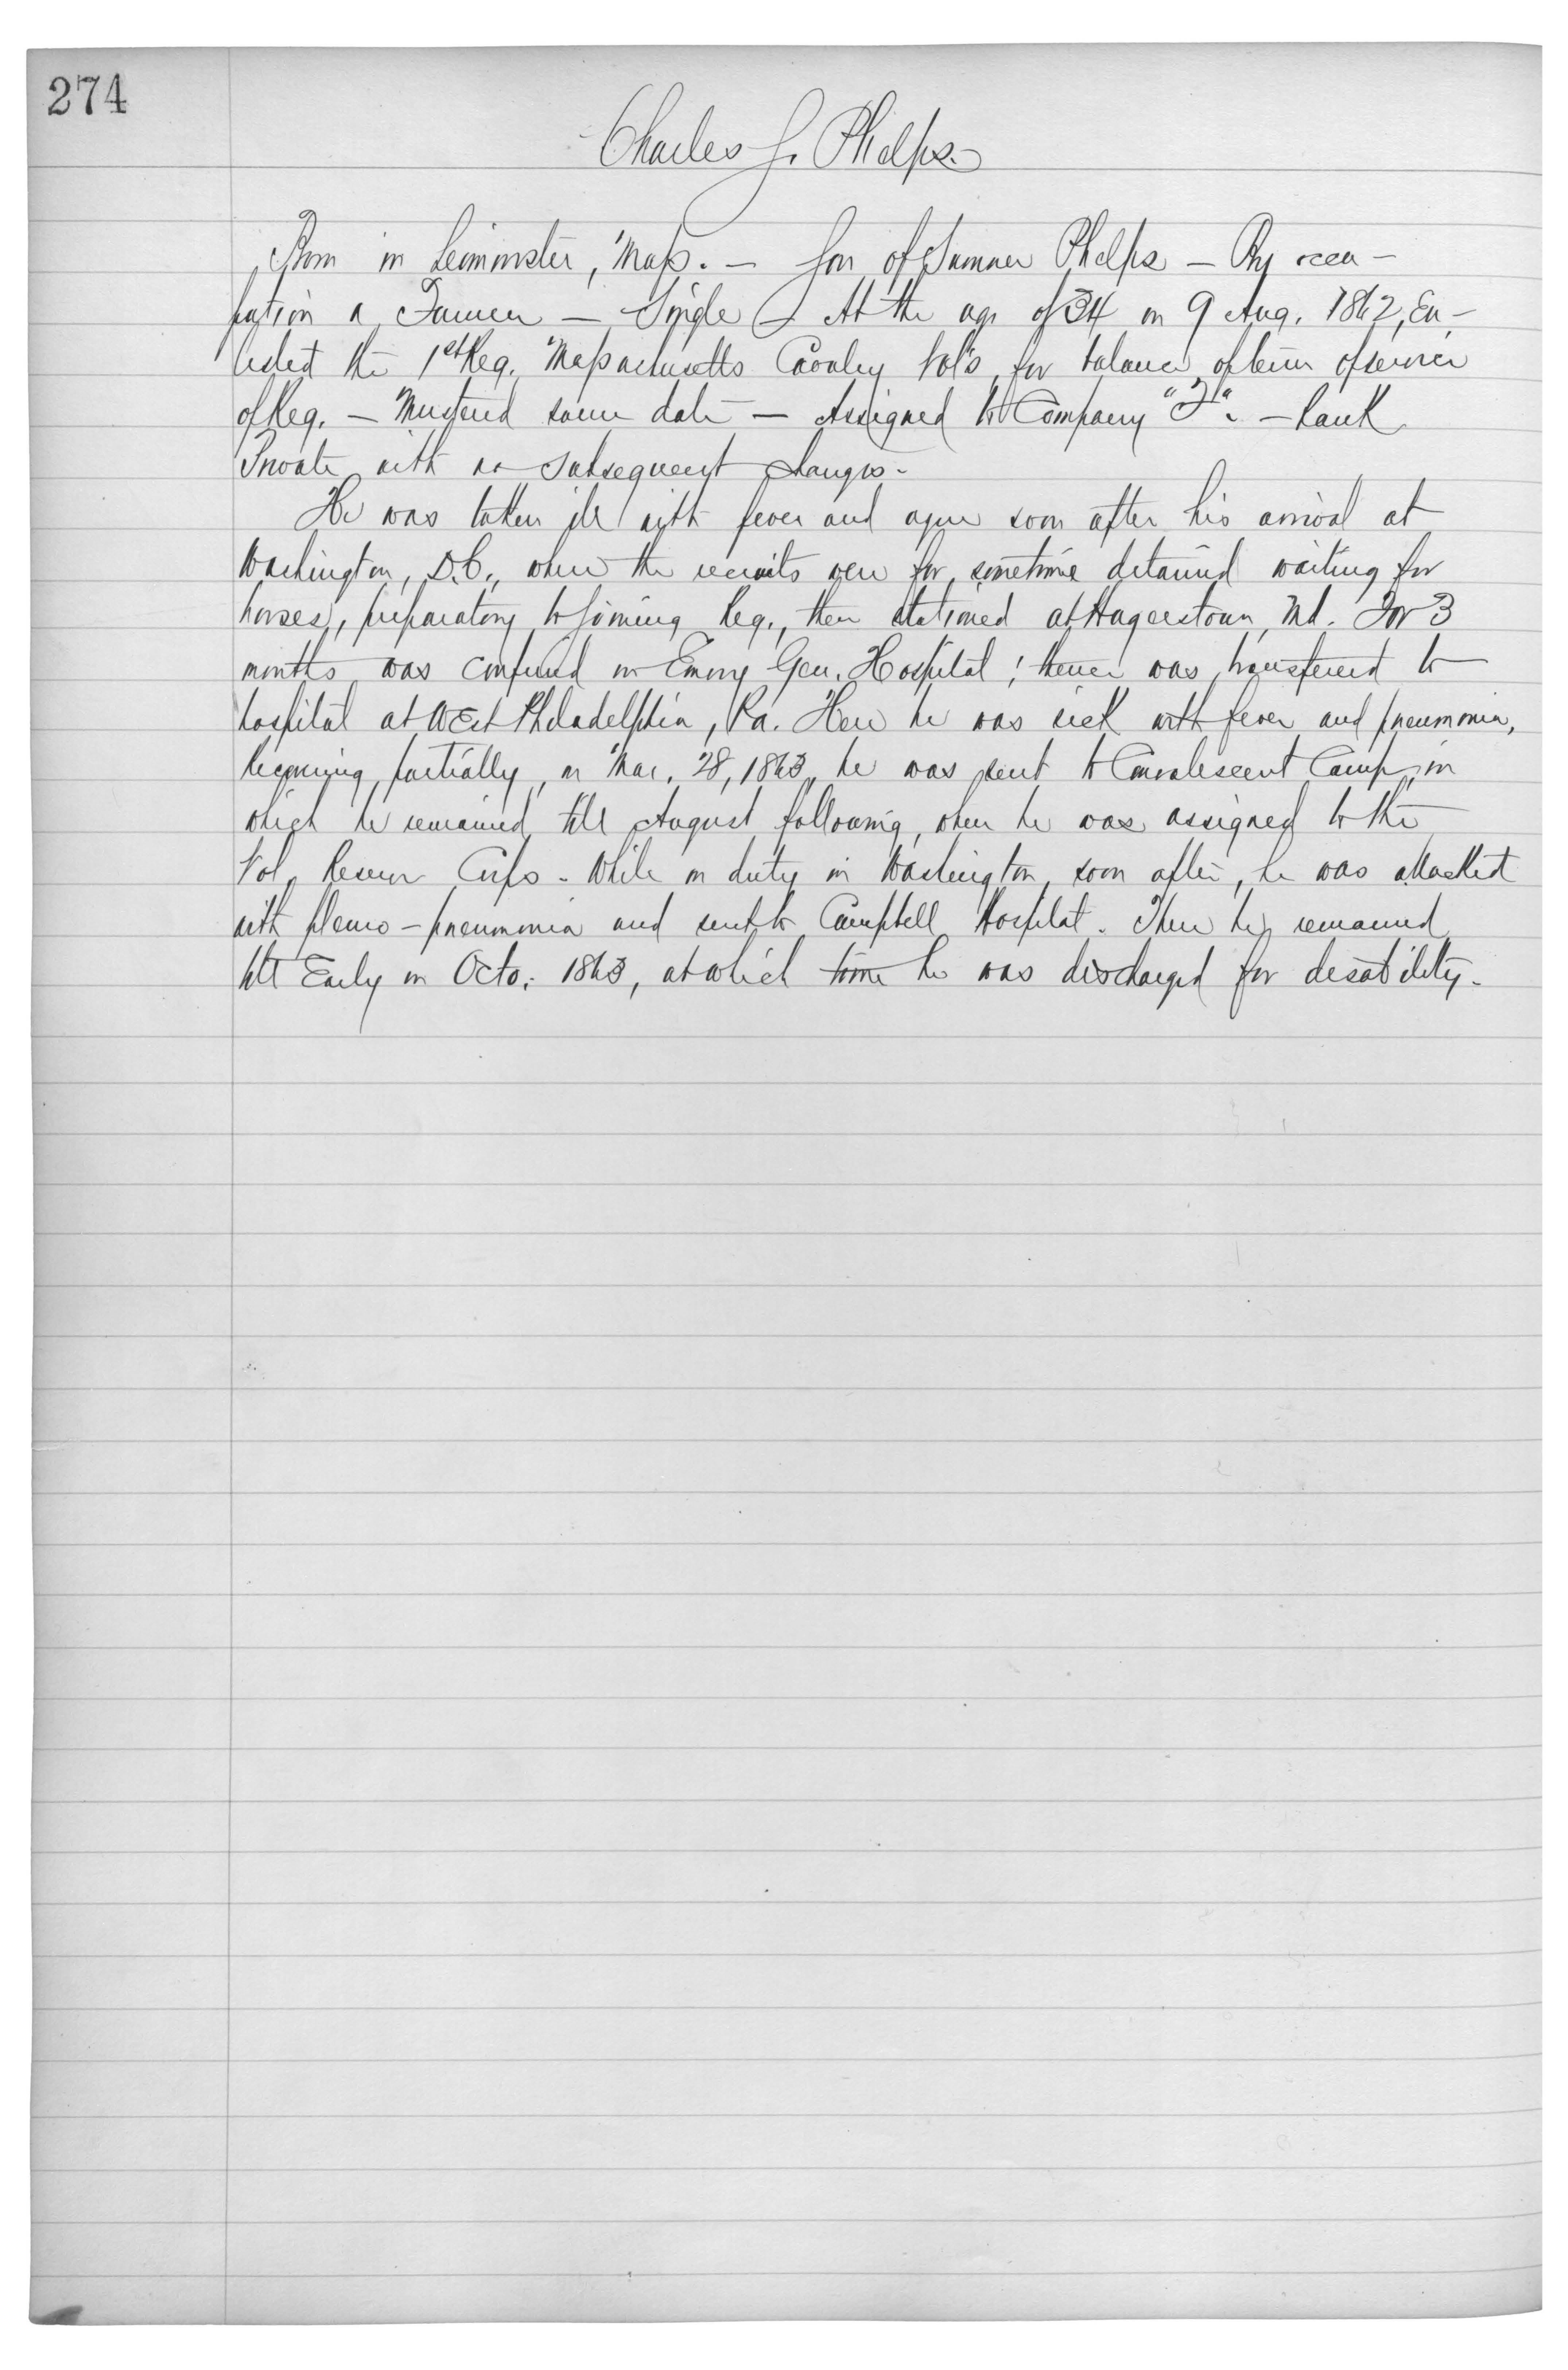 274
Charles J. Phelps.
Born in Leominster, Mass. — Son of Sumner Phelps — By occu-
pation a Farmer — Single — At the age of 34 on 9 Aug. 1862, En-
listed the 1st Reg. Massachusetts Cavalry Vol's, for balance of term of service
of Reg. — Mustered same date — Assigned to Company "F". — Rank
Private with no subsequent changes.
He was taken ill with fever and ague soon after his arrival at
Washington, D.C., where the recruits were for sometime detained waiting for
horses, preparatory to joining Reg., then stationed at Hagerstown, Md. For 3
months was confined in Emory Gen. Hospital; thence was transferred to
hospital at West Philadelphia, Pa. Here he was sick with fever and pneumonia,
Recovering, partially, on Mar. 28, 1863, he was sent to Convalescent Camp, in
which he remained till August following, when he was assigned to the
Vol. Reserve Corps. While on duty in Washington, soon after, he was attacked
with pleuro-pneumonia and sent to Campbell Hospital. There he remained
till Early in Octo. 1863, at which time he was discharged for disability.